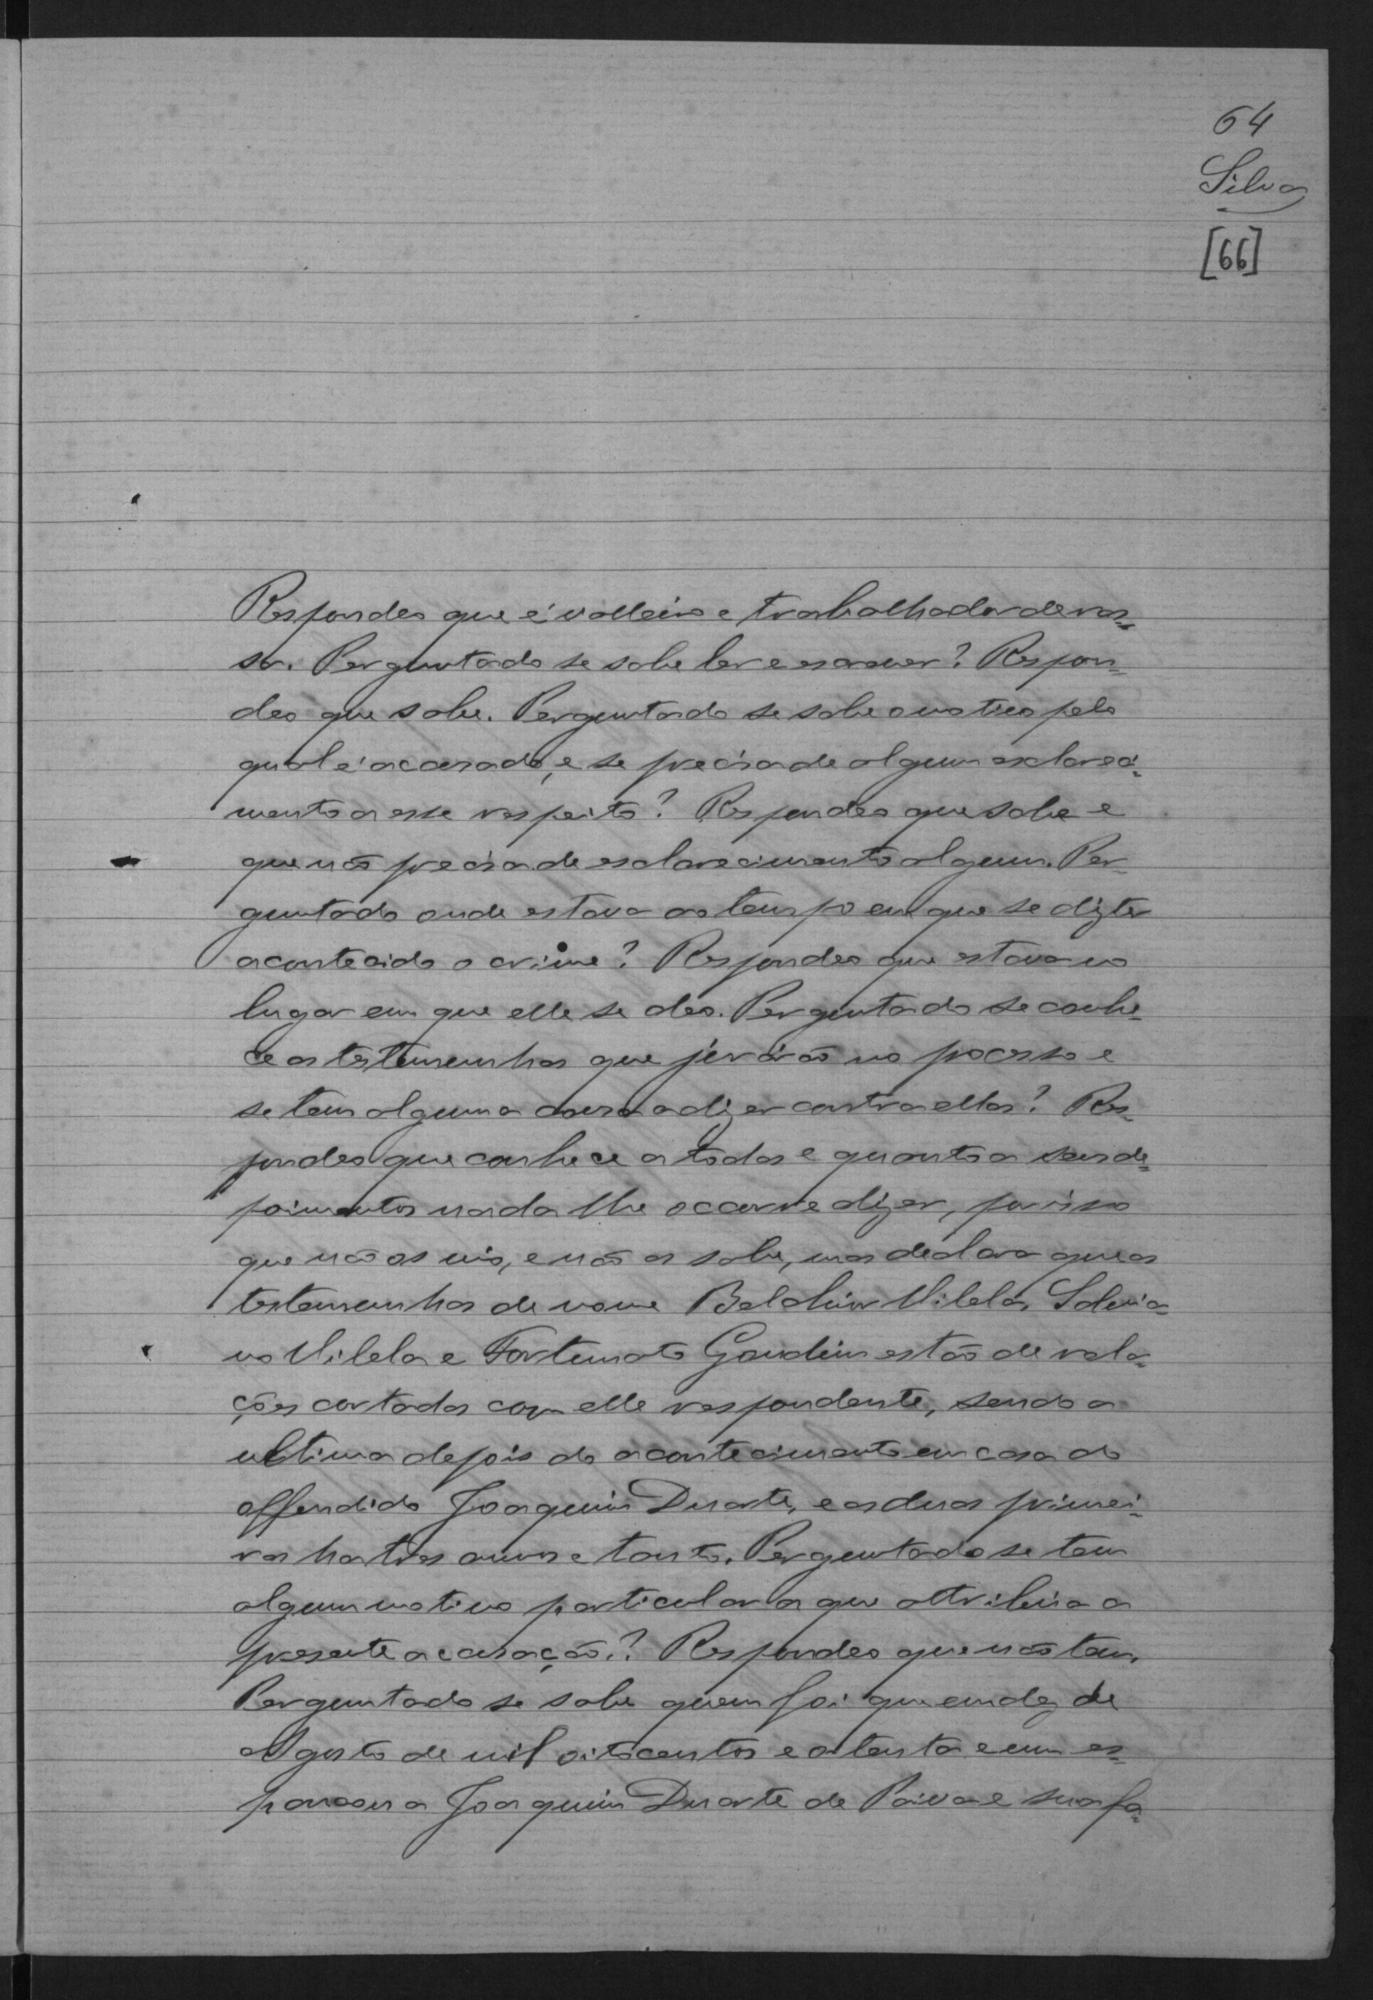 64
Silva
[66]
Respondeo que é valleiro e trabalhador de ros-
sa. Perguntado se sabe ler e escrever? Respon-
deo que sabe. Perguntado se sabe o motivo pelo
qual é accusado, e se precisa de algum esclareci-
mento a esse respeito? Respondeo que sabe e
que não precisa de esclarecimento algum. Per-
guntado onde estava ao tempo em que se diz ter
acontecido o crime? Respondeo que estava no
lugar em que elle se deo. Perguntado se conhe-
ce as testemunhas que jurárão no processo e
se tem alguma cousa a dizer contra ellas? Res-
pondeo que conhece a todas e quanto a seus de-
poimentos nada lhe occorre dizer, por isso
que não os vio, e não os sabe, mas declara que as
testemunhas de nome Belchior Vilela, Silveria-
no Vilela e Fortunato Gondim estão de rela-
ções cortadas com elle respondente, sendo a
ultima depois do acontecimento em casa do
offendido Joaquim Duarte, e as duas primei-
ras ha tres annos e tanto. Perguntado se tem
algum motivo particular a que attribúa a
presente accusação.? Respondeo que não tem.
Perguntado se sabe quem foi que em dez de
Agosto de mil oitocentos e oitenta e um es-
pancou a Joaquim Duarte de Paiva e sua fa-